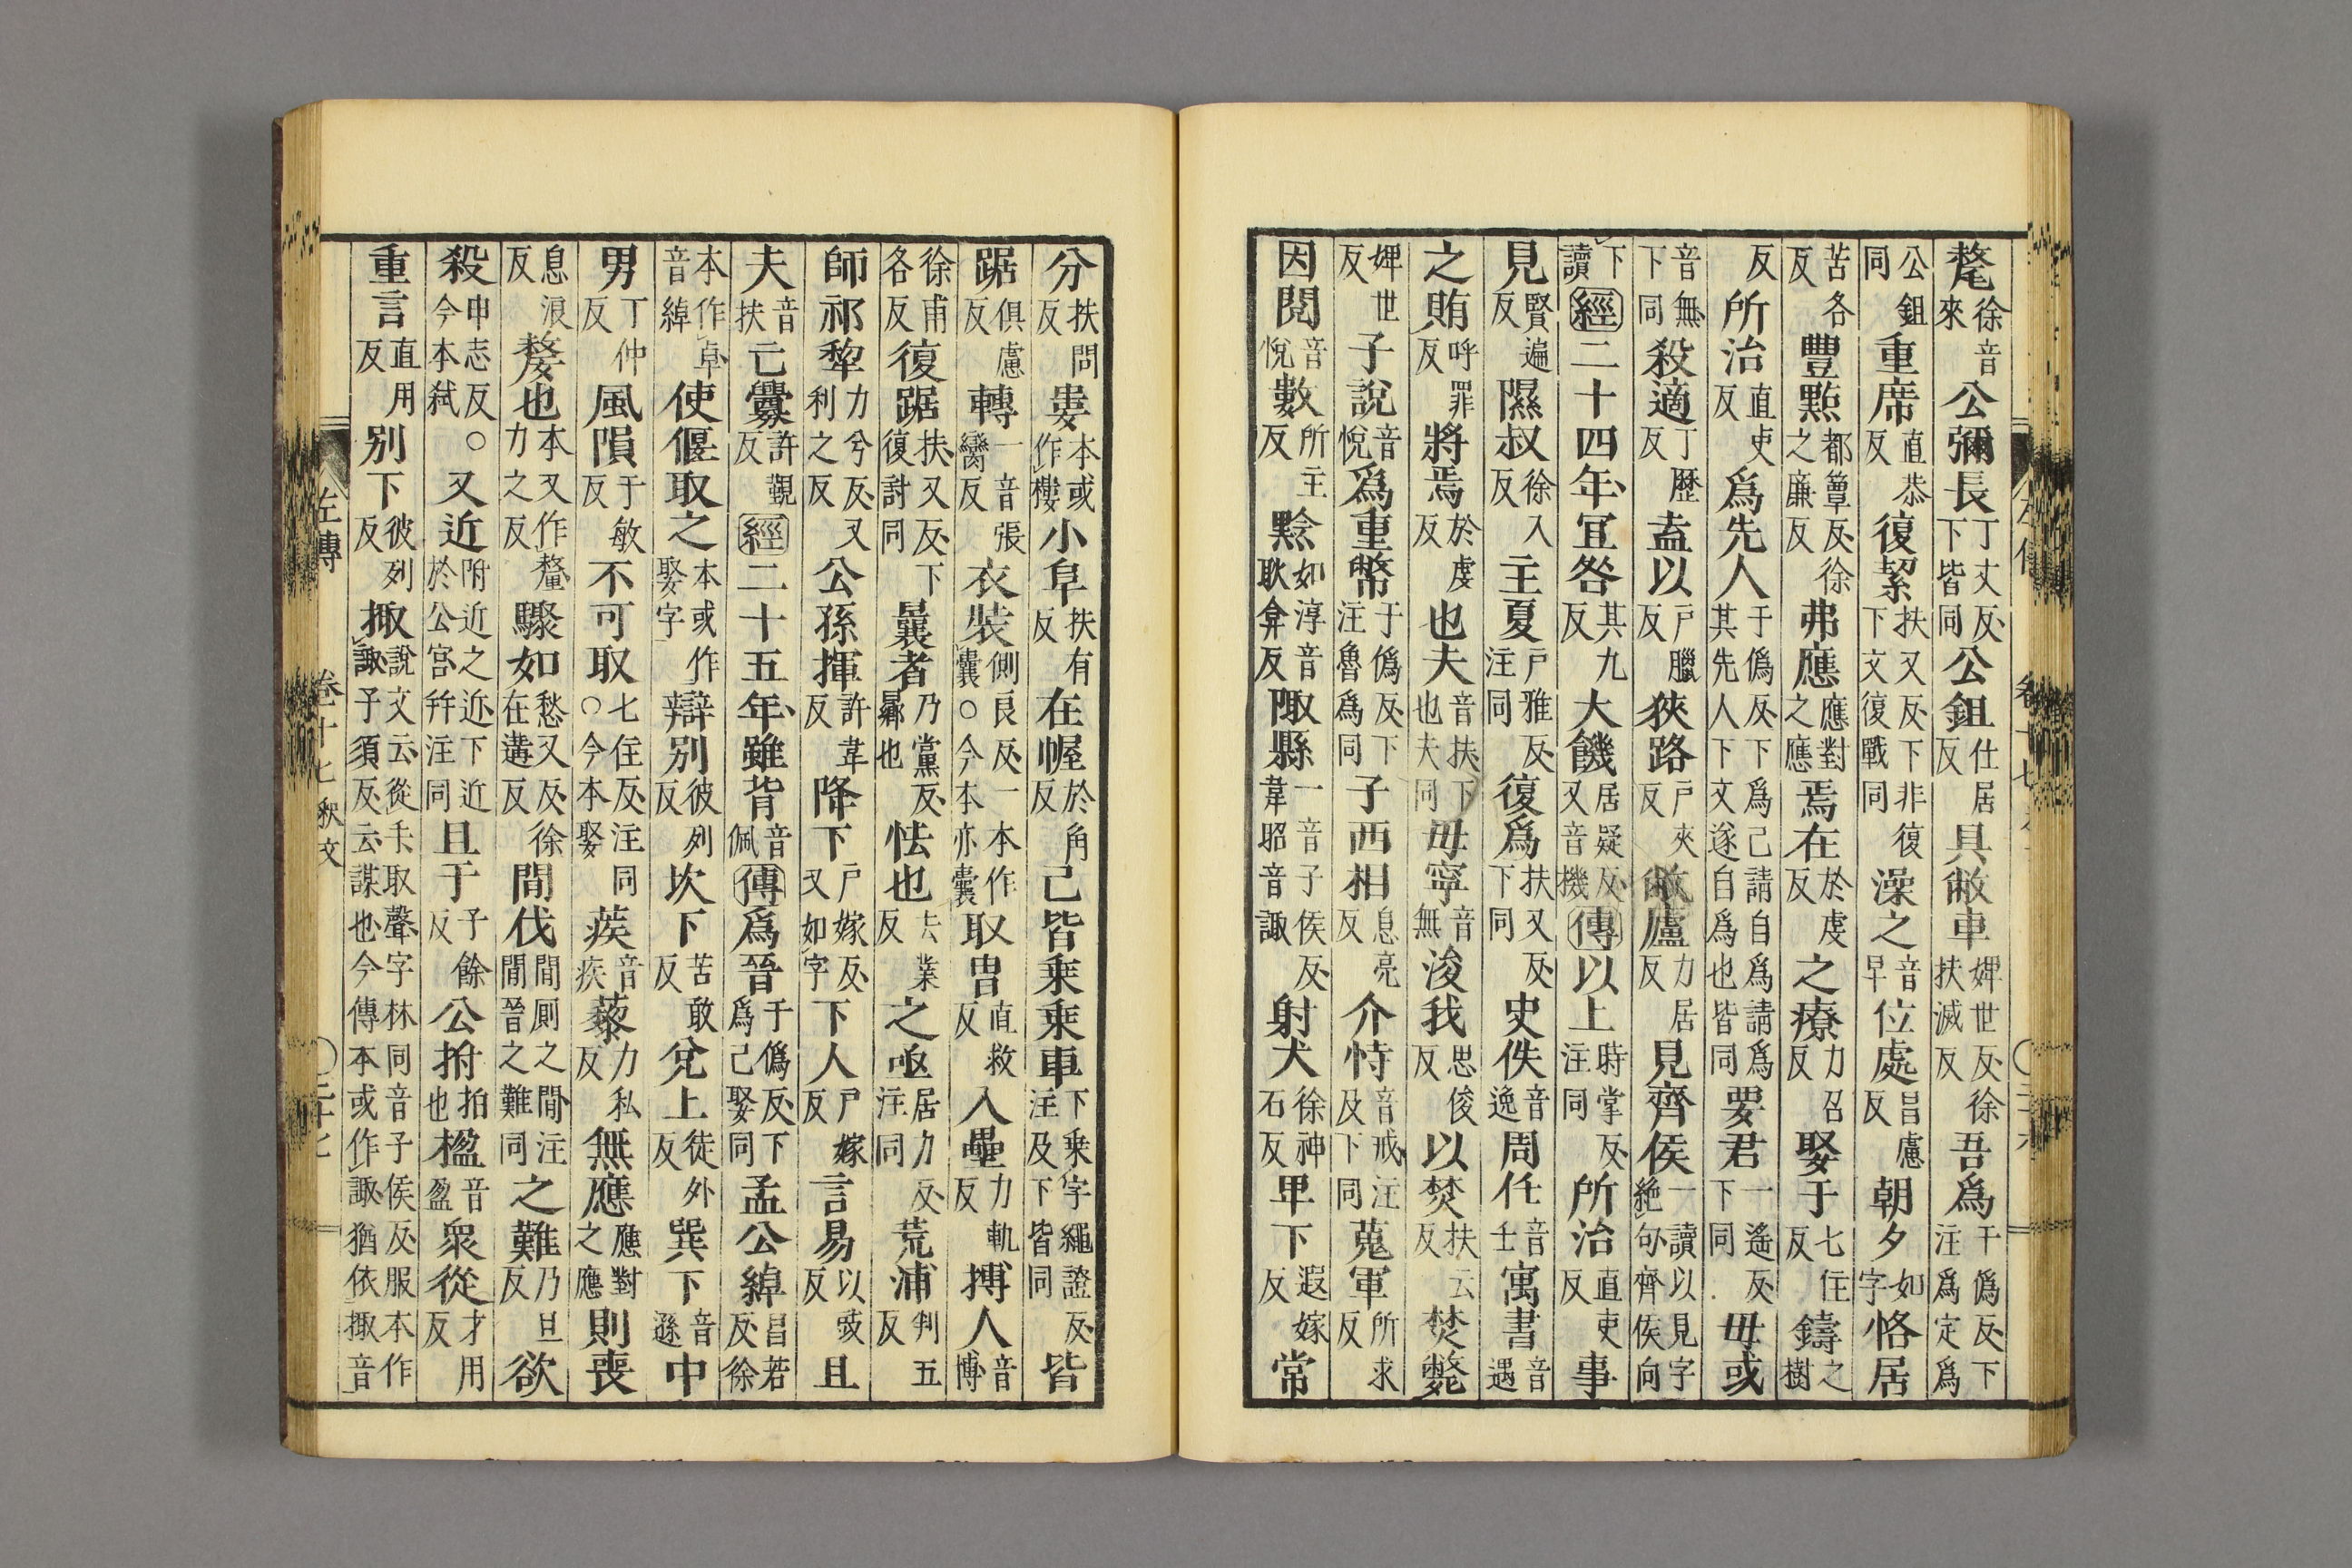 氂徐音來公彌長丁丈反下皆同公鉏仕居反具敝車婢世反徐扶滅反吾爲于僞反下注爲定爲
公鉏同重席直恭反復絜扶又反下非復下文復戰同澡之音早位處昌慮反朝夕如字恪居
苦各反豐點都簟反徐之廉反弗應應對之應焉在於虔反之療力召反娶于七住反鑄之樹
反所治直吏反爲先人于僞反下爲己請自爲請爲其先人下文遂自爲也皆同要君一遙反下同毋或
音無下同殺適丁歷反盍以戶臘反狹路戶夾反敝廬力居反見齊侯一讀以見字絶句齊侯向
下讀經二十四年宜咎其九反大饑居疑反又音機傳以上時掌反注同所治直吏反事
見賢遍反隰叔徐入反主夏戶雅反注同復爲扶又反下同史佚音逸周任音壬寓書音遇
之賄呼罪反將焉於虔反也夫音扶下也夫同毋寧音無浚我思俊反以焚扶云反焚斃
婢世反子說音悅爲重幣于僞反下注魯爲同子西相息亮反介恃音戒注及下同蒐軍所求反
因閱音悅數所主反黥如淳音耿弇反陬縣一音子侯反韋昭音諏射犬徐神石反卑下遐嫁反常
分扶問反婁本或作樓小阜扶有反在幄於角反己皆乘乘車下乘字繩證反注及下皆同皆
踞俱慮反轉一音張戀反衣裝側良反一本作囊○今本亦囊取冑直救反入壘力軌反搏人音博
徐甫各反復踞扶又反下復討同曩者乃黨反曏也怯也去業反之亟居力反注同荒浦判五反
師祁犂力兮反又力之反又利之反公孫揮許韋反降下戶嫁反又如字下人戶嫁反言易以豉反且
夫音扶亡釁許覲反經二十五年雖背音佩傳爲晉于僞反下爲己娶同孟公綽昌若反徐
本作卓音綽使偃取之本或作娶字辯別彼列反坎下苦敢反兌上徒外反巽下音遜中
男丁仲反風隕于敏反不可取七住反注同○今本娶蒺音疾藜力私反無應應對之應則喪
息浪反嫠也本又作釐力之反驟如愁又反徐在遘反間伐間廁之間注間晉之難同之難乃旦反欲
殺申志反○今本弒又近附近之近下近於公宮幷注同且于子餘反公拊拍也楹音盈衆從才用反
重言直用反別下彼列反掫說文云從手取聲字林同音子侯反服本作諏子須反云謀也今傳本或作諏猶依掫音
左傳 卷十七 釈文